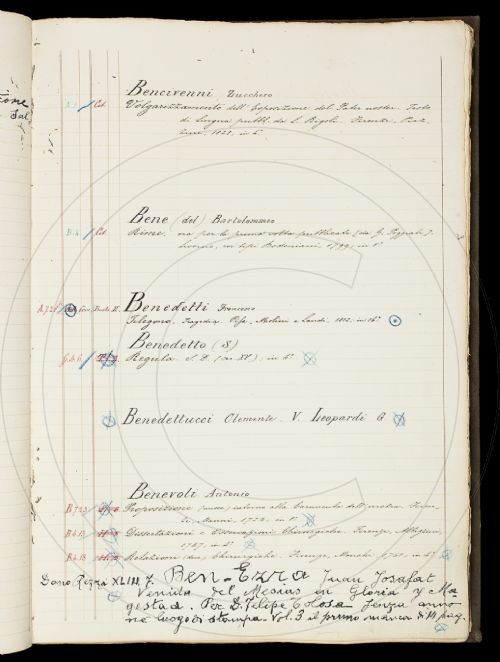 Bencivenni Zucchero
Cat. Volgarizzamento dell'Esposizione del Pater noster. Testo
di lingua pubbl. da L. Rigoli. Firenze, Piaz-
zini, 1828, in 8°
Bene (del) Bartolommeo
Cat. Rime. ora per la prima volta pubblicate [da G. Poggiali].
Livorno, co' tipi Bodoniani, 1799, in 8°
Benedetti Francesco
Telegono. Tragedia. Pisa, Molini e Landi, 1812, in 16°
Benedetto (S)
Regula. S. D. (sec. XV); in 4°
Benedettucci Clemente. V. Leopardi G.
Benevoli Antonio
Proposizione intorno alla Caruncula dell'uretra. Firen-
ze, Manni, 1724, in 8°
Dissertazioni e Osservazioni Chirurgiche. Firenze, Albizzini,
1747, in 4°
Relazioni (due) Chirurgiche, Firenze,
Dono Rezza XLIII 7. Ben-Ezra Juan Josafat
Venida del Mesias en Gloria y Ma-
gestad. Por D. Felipe Tolosa senza anno
nè luogo di stampa. Vol. 3 il primo manca di 14 pag.